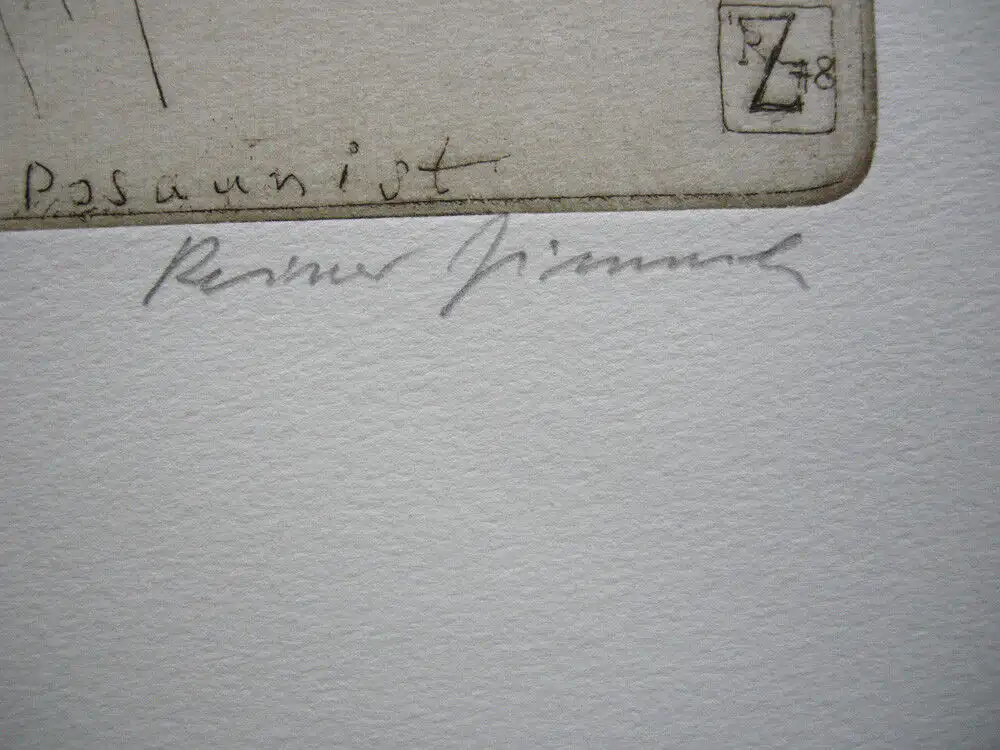 RZ 78
Posaunist
Reiner Zimnik